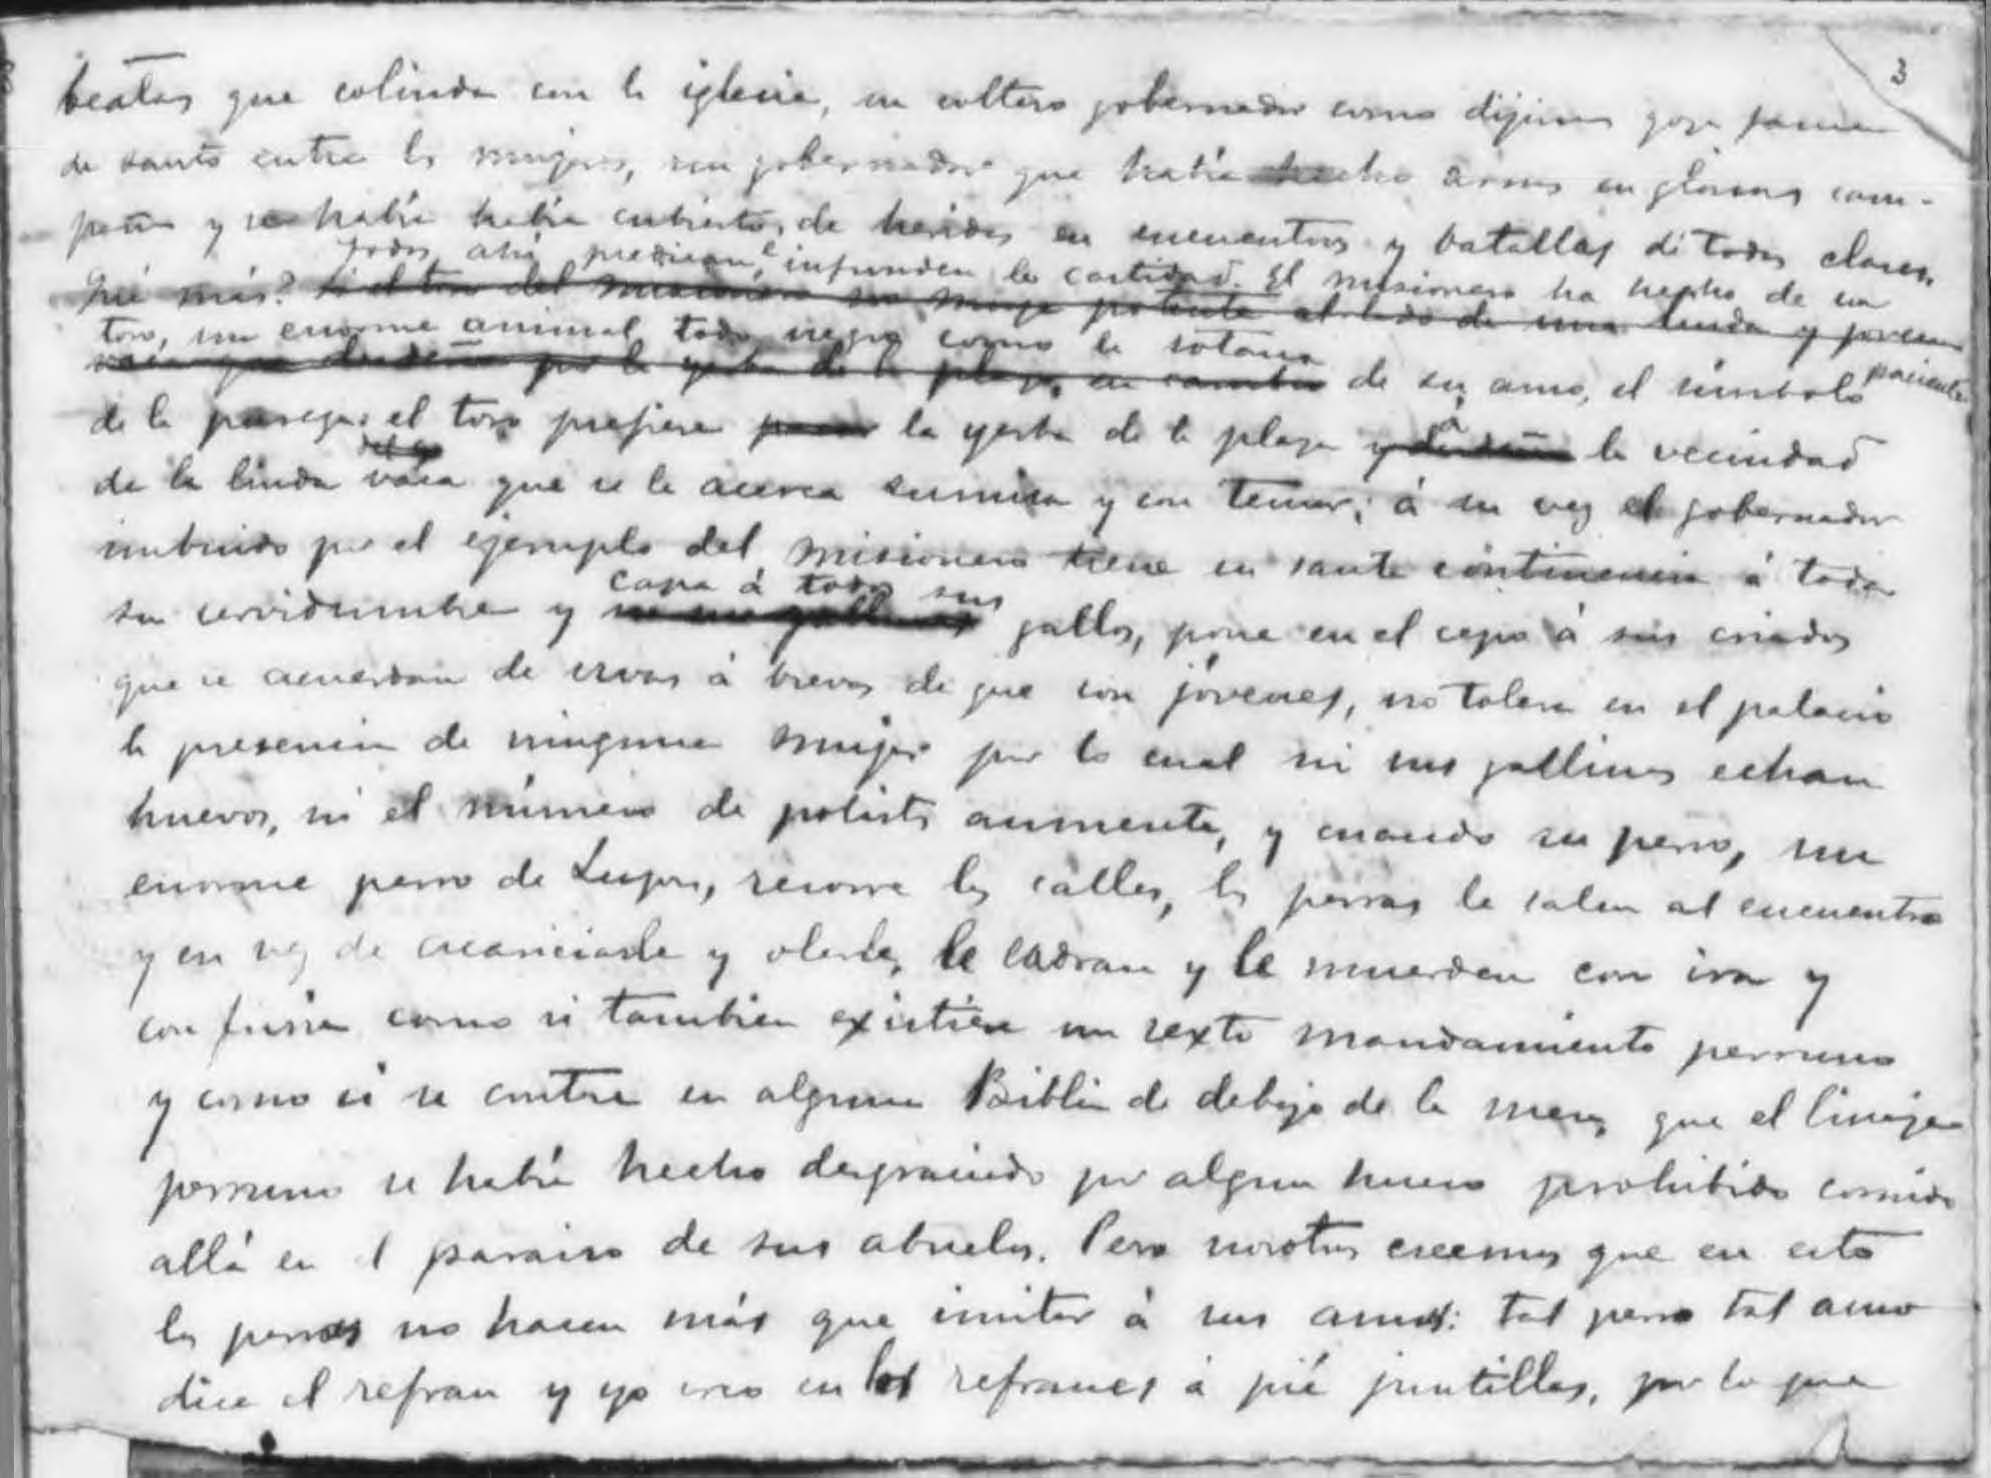 3
beatas que colinda con la iglesia, un soltero gobernador como dijimos goza fama
de santo entre las mujeres, un gobernador que había hecho armas en gloriosas cam-
pañas y se había había cubierto de heridas en encuentros y batallas de todas clases.
todos ahí predican é infunden la castidad. El misionero ha hecho de un
Qué más? Si el toro del misionero no muge potente al lado de una linda y joven
toro, un enorme animal todo negro como la sotana
vaca que desdeña por la yerba de la plaza, en cambio de su amo, el símbolo
de la el toro prefiere la yerba de la plaza y á desdeña la vecindad
de la linda vaca que se le acerca sumisa y con temor; á su vez el gobernador
imbuido por el ejemplo del misionero tiene en santa continencia á toda
capa á todos sus
su servidumbre y gallos, pone en el cepo á sus criados
que se acuerdan de uvas á brevas de que son jóvenes, no tolera en el palacio
la presencia de ninguna mujer por lo cual ni sus gallinas echan
huevos, ni el número de polistas aumenta, y cuando su perro, un
enorme perro de recorre las calles, las perras le salen al encuentro
y en vez de acariciarle y olerle, le ladran y le muerden con ira y
con furia como si tambien existiese un sexto mandamiento perruno
y como si se contase en alguna Biblia de debajo de la mesa, que el linaje
perruno se había hecho desgraciado por algun hueso prohibido comido
allá en el paraiso de sus abuelos. Pero nosotros creemos que en esto
los perros no hacen más que imitar á sus amos: tal perro tal amo
dice el refran y yo creo en los refranes á pié juntillas, por lo que